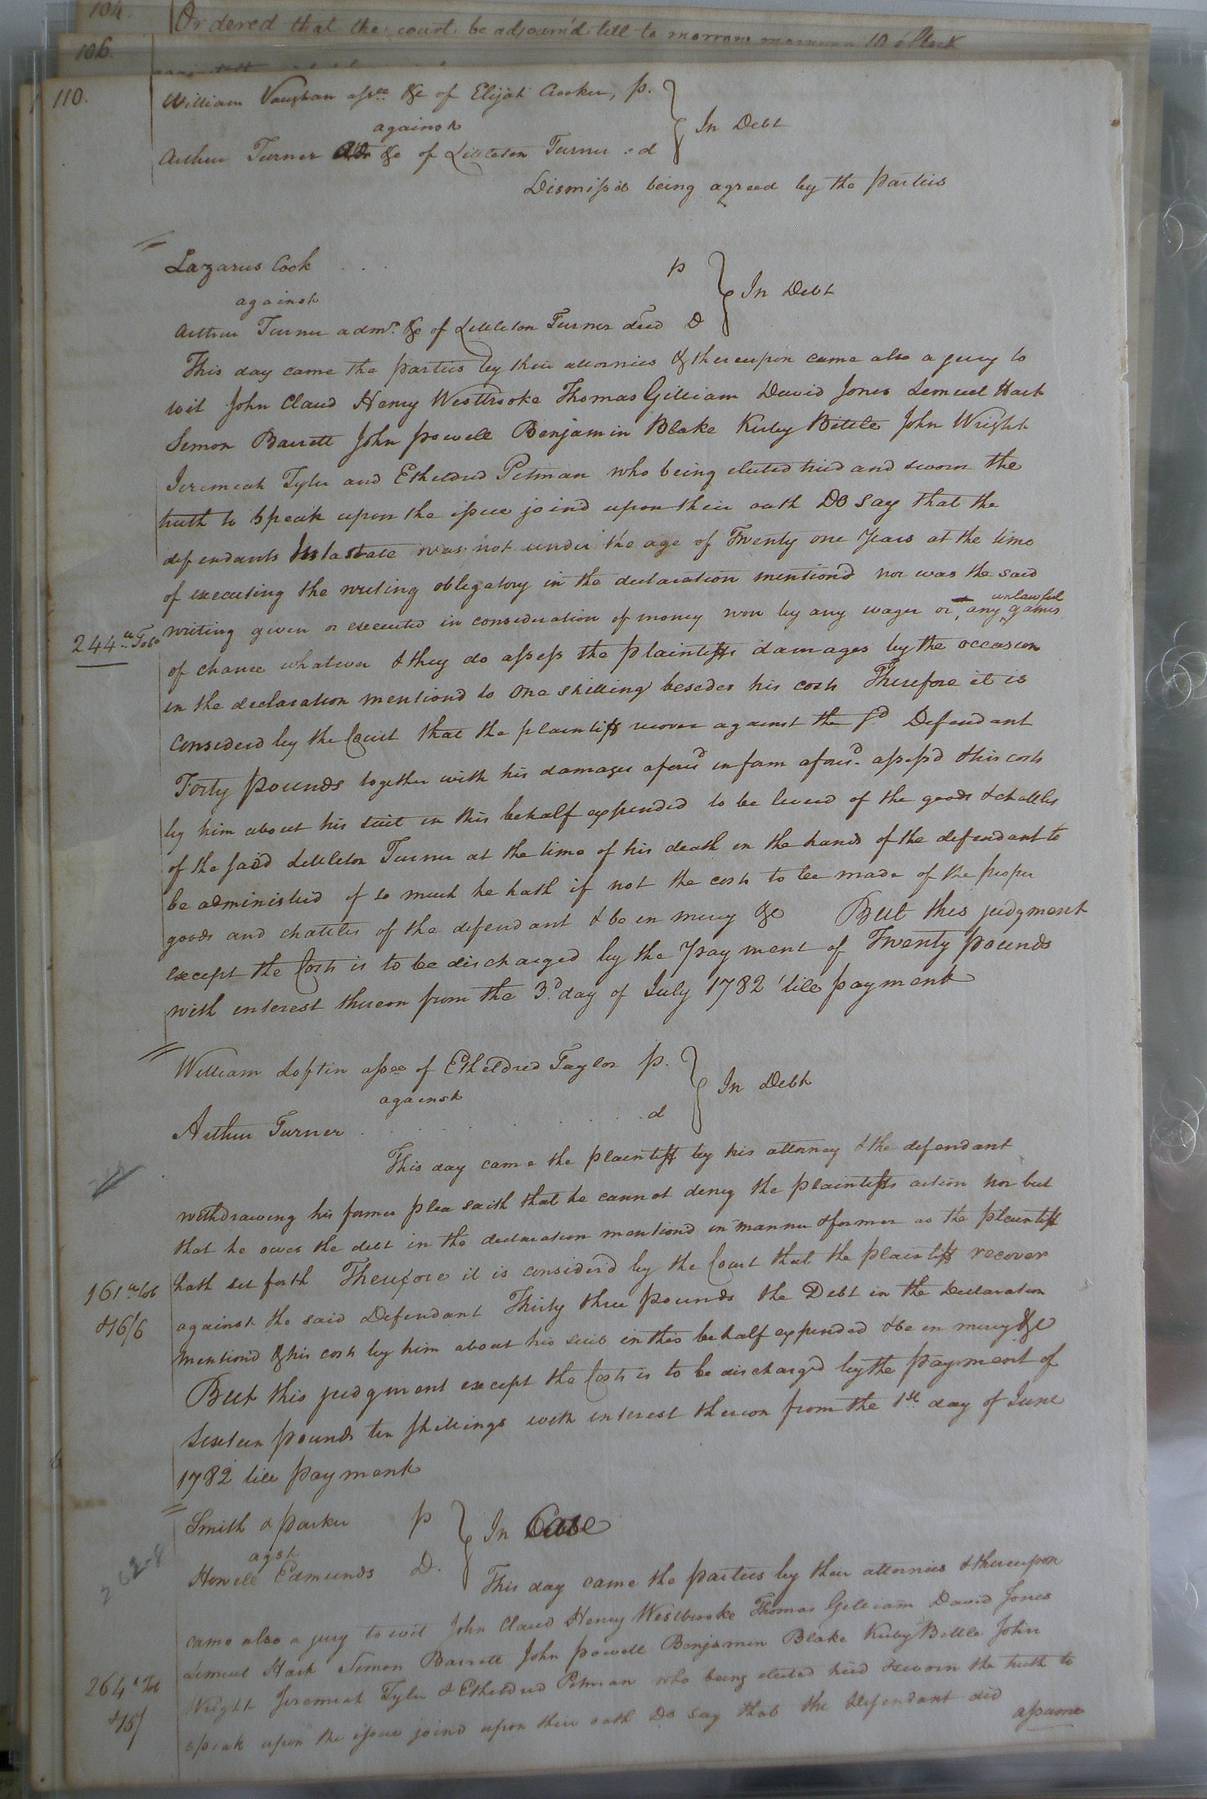 104.
Ordered that the court be adjourn'd till to morrow morning 10 o'Clock
106.
110.
William Vaughan assee &c of Elijah Crocker, p.
against
In Debt
Arthur Turner adr &c of Littleton Turner d
Dismiss'd being agreed by the parties
Lazarus Cook p
against
In Debt
Arthur Turner admr. &c of Littleton Turner decd D
This day came the parties by their attornies & thereupon came also a jury to
wit John Claud Henry Westbrooke Thomas Gilliam David Jones Lemuel Hart
Simon Barrett John Powell Benjamin Blake Kirby Bittle John Wright
Jeremiah Tyler and Etheldred Pitman who being elected tried and sworn the
truth to speak upon the issue join'd upon their oath Do say that the
defendants Intestate was not under the age of Twenty one Years at the time
of executing the writing obligatory in the declaration mention'd nor was the said
unlawful
writing given or executed in consideration of money won by any wager or any games
244 lb Tobo
of chance whatever & they do assess the plaintiffs damages by the occasion
in the declaration mention'd to One shilling besides his costs Therefore it is
Considered by the Court that the plaintiff recover against the sd Defendant
Forty pounds together with his damages aforsd in form aforsd assess'd & his costs
by him about his suit in this behalf expended to be levied of the goods & chattles
of the said Littleton Turner at the time of his death in the hands of the defendant to
be administer'd if so much he hath if not the costs to be made of the proper
goods and chattles of the defendant & be in mercy &c But this judgment
except the Costs is to be discharged by the payment of Twenty pounds
with interest thereon from the 3d. day of July 1782 'till payment
William Loftin assee of Etheldred Taylor p.
against
In Debt
Arthur Turner d
This day came the plaintiff by his attorney & the defendant
withdrawing his former plea saith that he cannot deny the plaintiffs action nor but
that he owes the debt in the declaration mention'd in manner & form as the plaintiff
hath set forth Therefore it is consider'd by the Court that the plaintiff recover
161 lb tob
against the said Defendant Thirty three pounds the Debt in the Declaration
& 16/6
mention'd & his costs by him about his suit in this behalf expended & be in mercy &c
But this judgment except the Costs is to be discharg'd by the payment of
Sixteen pounds ten shillings with interest thereon from the 1st day of June
1782 till payment
Smith & Parker p
agst
In Case
Howell Edmunds D.
262-8
This day came the parties by their attornies & thereupon
came also a jury to wit John Claud Henry Westbrooke Thomas Gilliam David Jones
Lemuel Hart Simon Barrett John Powell Benjamin Blake Kirby Bittle John
264 Tob
Wright Jeremiah Tyler & Etheldred Pitman who being elected tried & sworn the truth to
& 15/
speak upon the issue joind upon their oath Do say that the Defendant did
assume